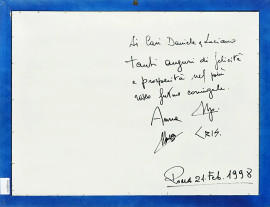 Ai Cari Daniele e Luciano
tanti auguri di felicità
e prosperità nel più
roseo futuro coniugale.
Anna
CRIS.
Roma 21. Feb. 1998